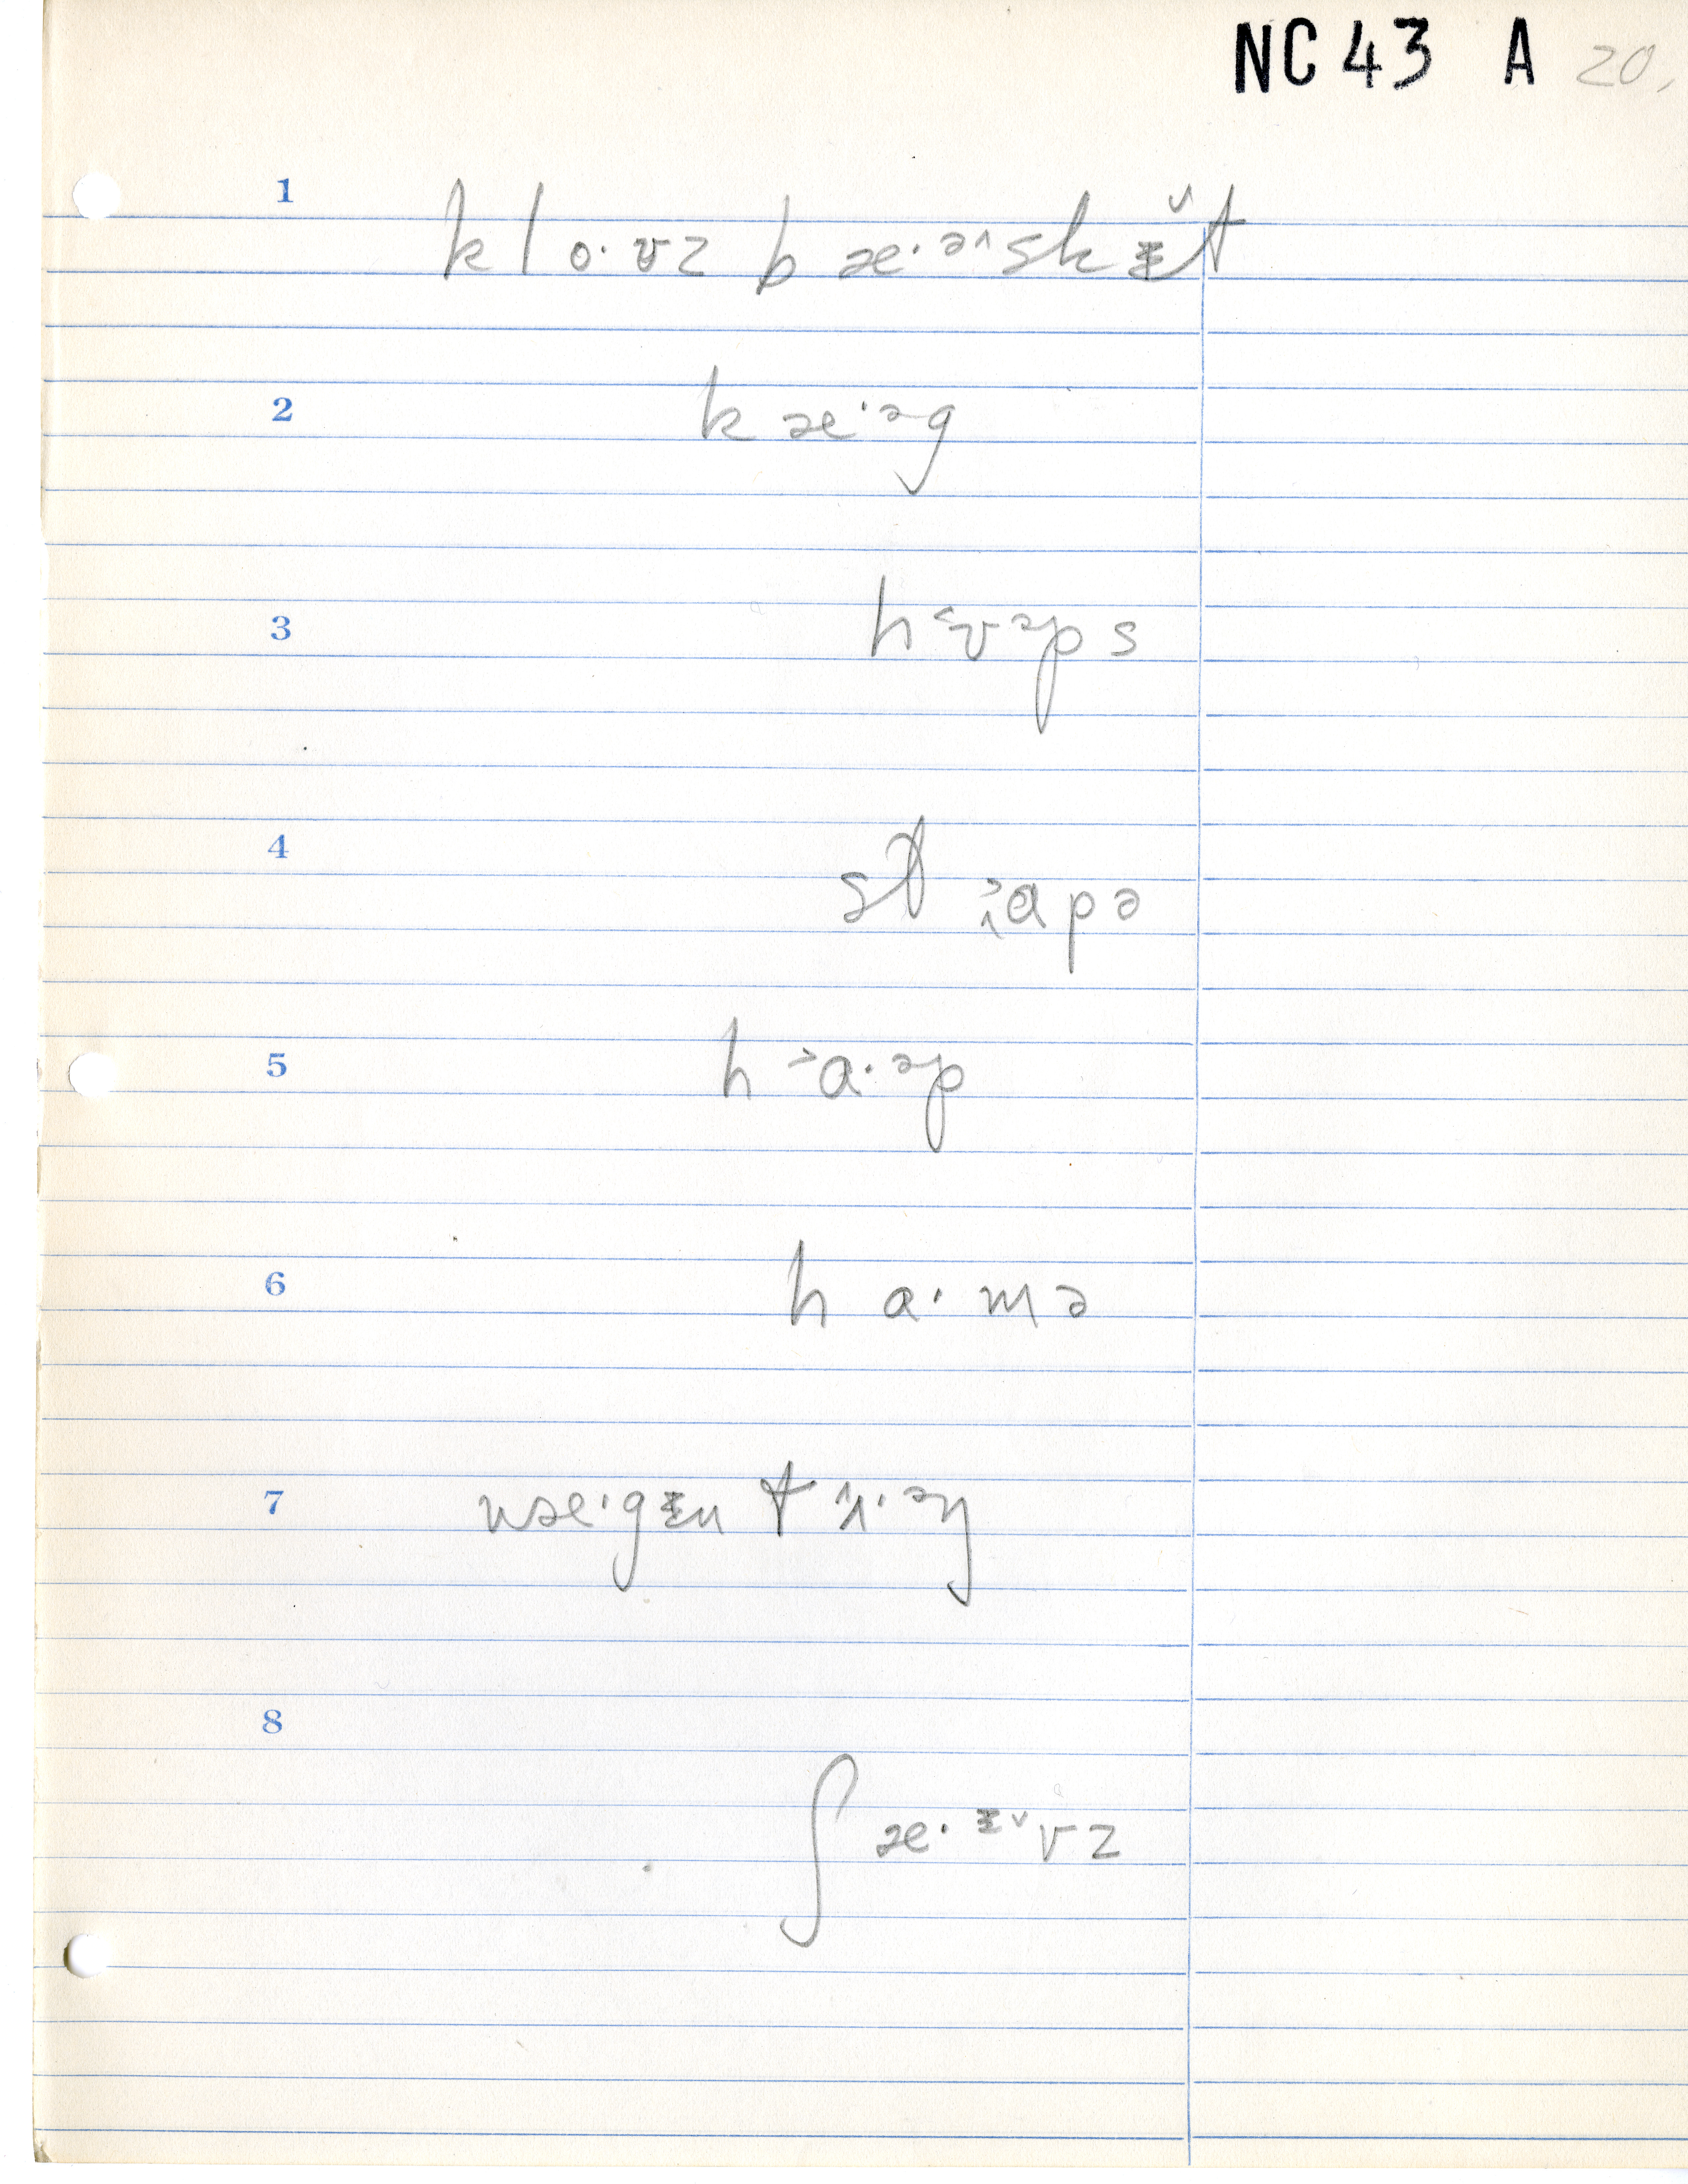 NC 43 A 20.
1 klo·ʊz bæ·ə˄skɨ̌t
2 kæ·əg
3 h˂ɒəps
4 st a˃pə
5 h˃ɑ·əp
6 hɑ·mə
7 wæ·gɨn tʌ˄·əŋ
8 ʃæ·ɨ˅vz